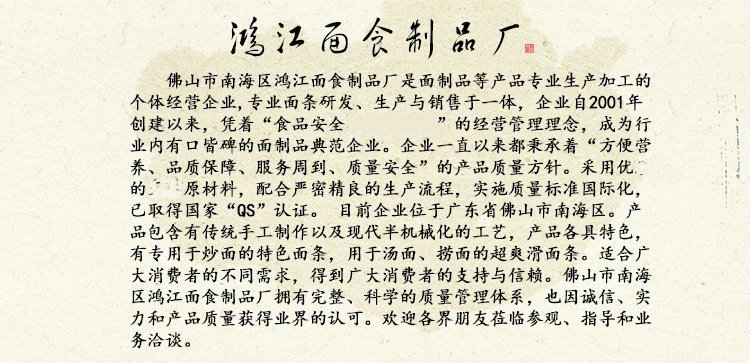 鸿江面食制品厂
佛山市南海区鸿江面食制品厂是面制品等产品专业生产加工的
个体经营企业,专业面条研发、生产与销售于一体，企业自2001年
创建以来，凭着“食品安全 ”的经营管理理念，成为行
业内有口皆碑的面制品典范企业。企业一直以来都秉承着“方便营
养、品质保障、服务周到、质量安全”的产品质量方针。采用优
的 原材料，配合严密精良的生产流程，实施质量标准国际化，
已取得国家“QS”认证。 目前企业位于广东省佛山市南海区。产
品包含有传统手工制作以及现代半机械化的工艺，产品各具特色，
有专用于炒面的特色面条，用于汤面、捞面的超爽滑面条。适合广
大消费者的不同需求，得到广大消费者的支持与信赖。佛山市南海
区鸿江面食制品厂拥有完整、科学的质量管理体系，也因诚信、实
力和产品质量获得业界的认可。欢迎各界朋友莅临参观、指导和业
务洽谈。